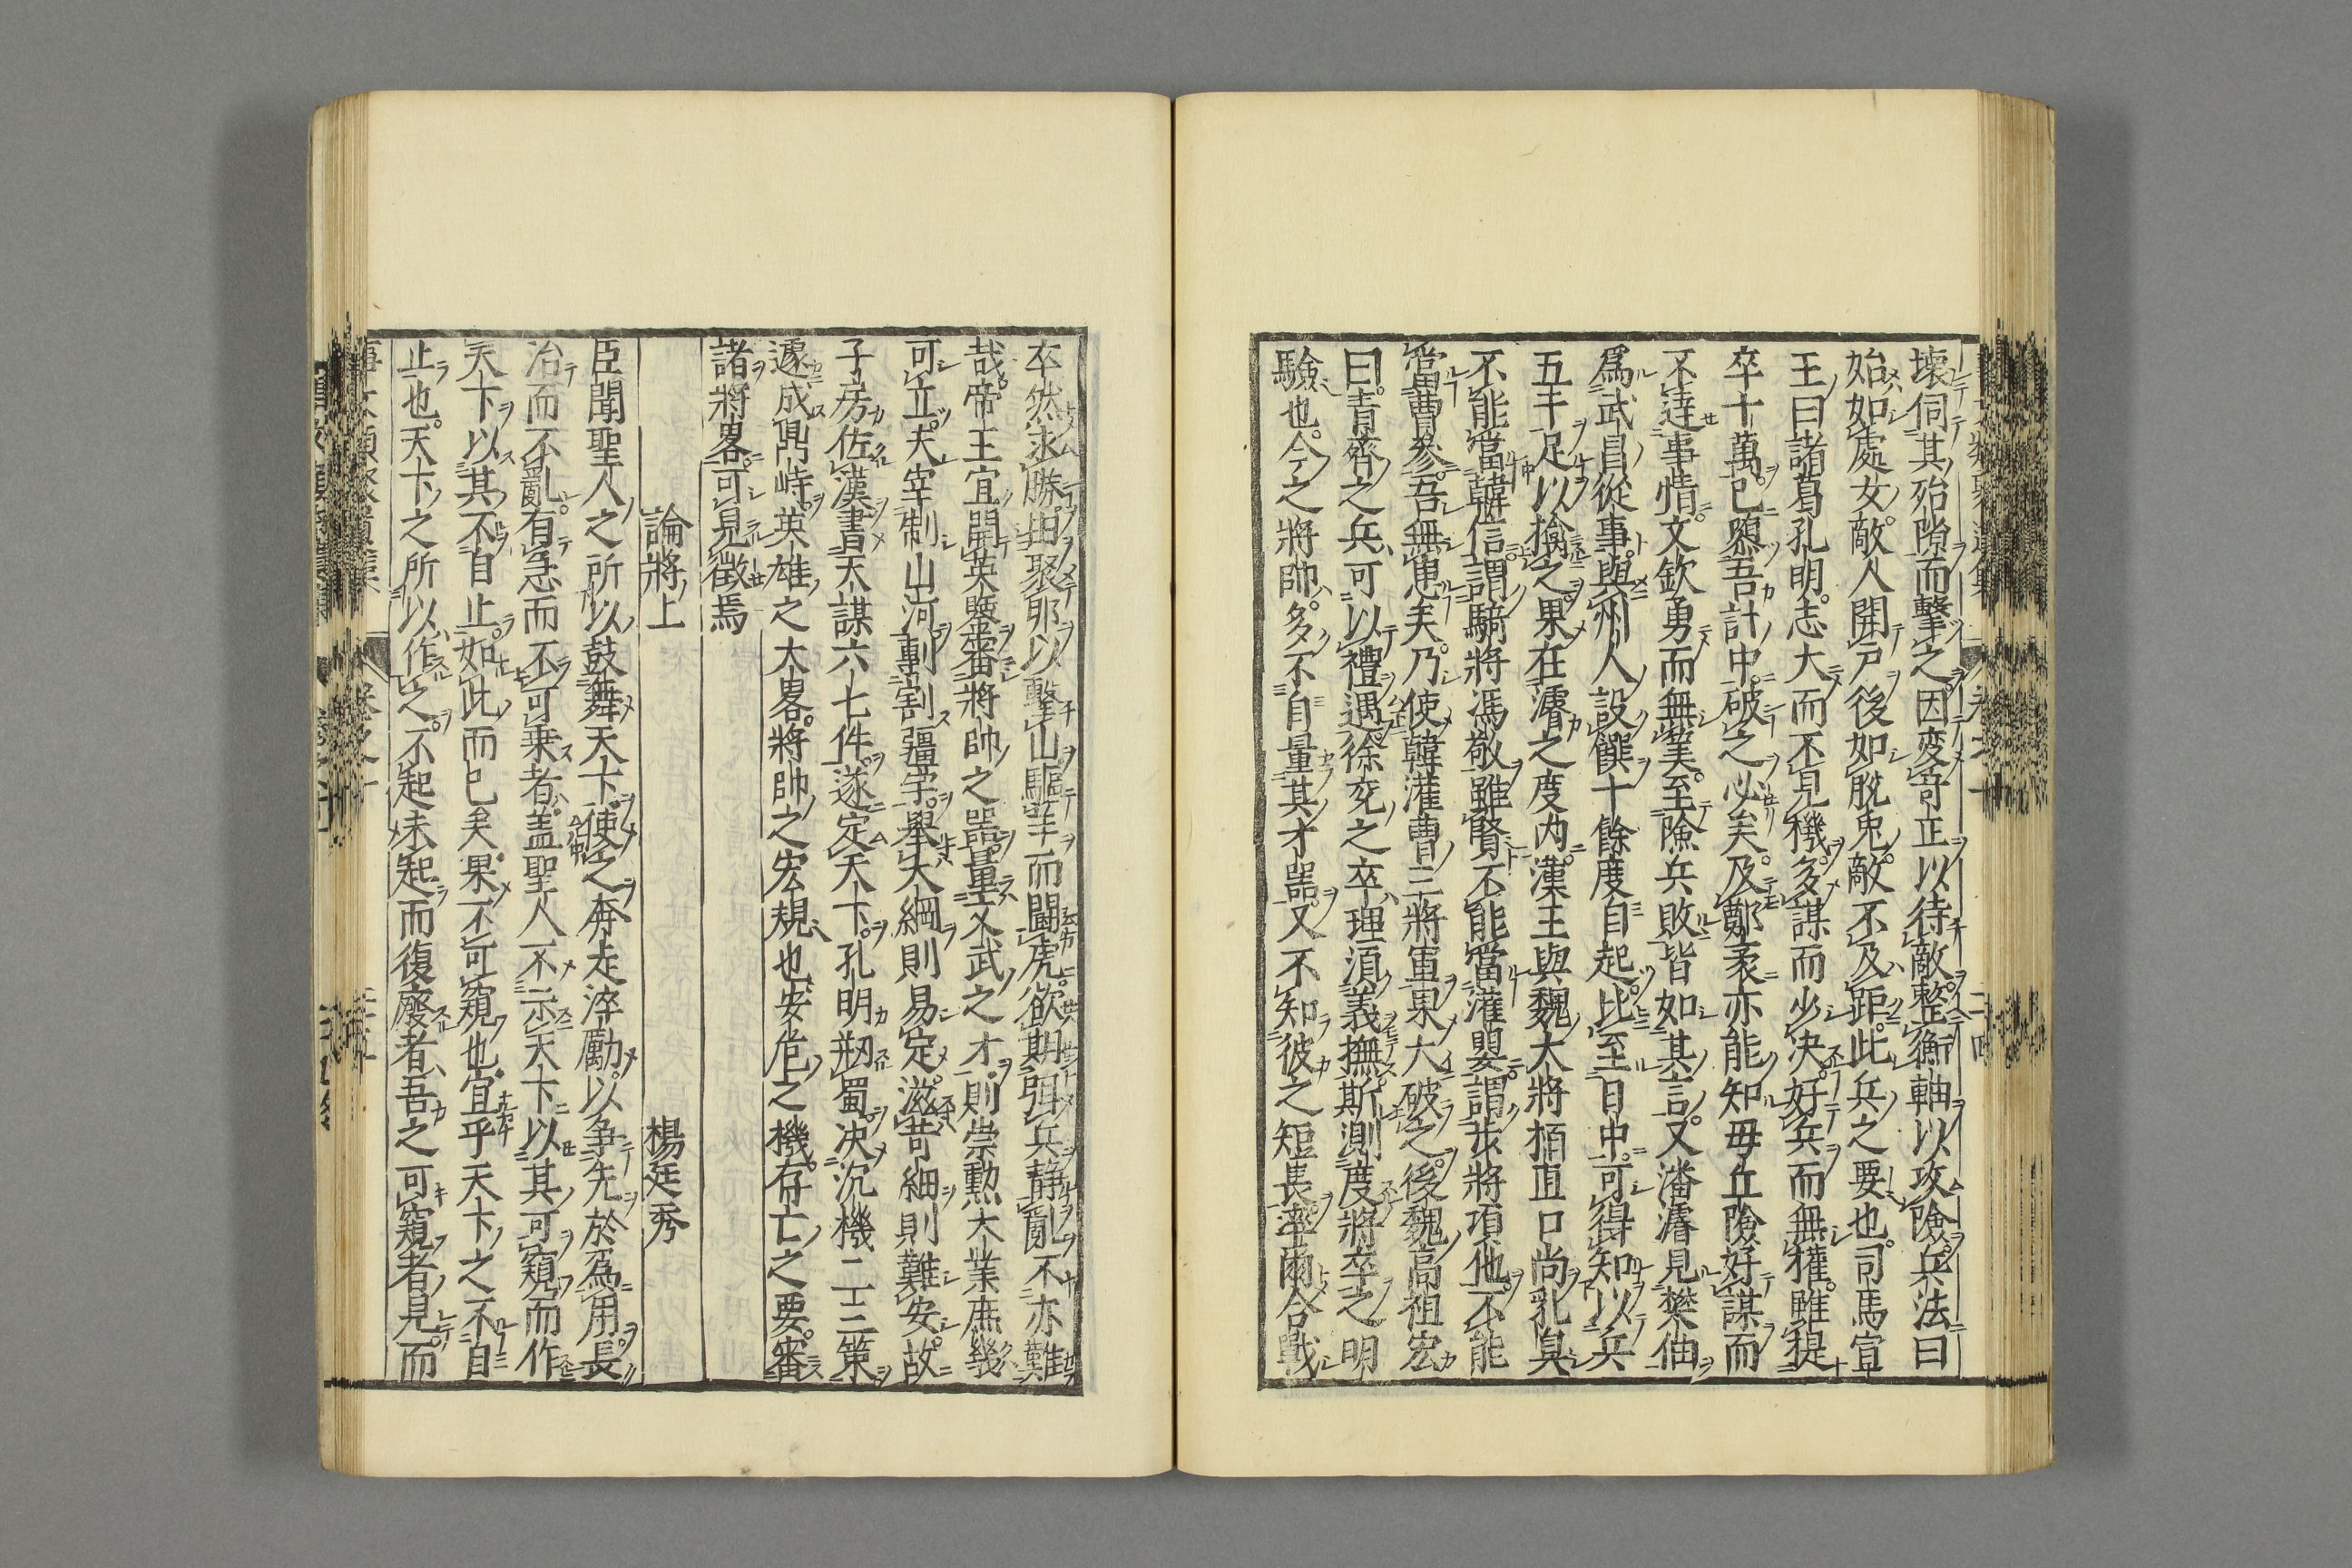 壊伺其殆隙而擊之因変竒正以待敵整衡軸以攻險兵法曰
始如處女敵人開戸後如脱兎敵不及距此兵之要也司馬宣
王曰諸葛孔明志大而不見機多謀而少决好兵而無權雖提
卒十萬已墮吾計中破之必矣及鄭袤亦能知毋丘險好謀而
不達事情文欽勇而無筭至險兵敗皆如其言又潘濬見樊伷
爲武昌從事與州人設饌十餘度自起比至日中可得知以兵
五千足以擒之果在濬之度内漢王與魏大將栢直口尚乳臭
不能當韓信謂騎將馮敬雖賢不能當灌嬰謂歩將項他不能
當曹參吾無患矣乃使韓灌曹三將軍果大破之後魏高祖宏
曰青齊之兵可以禮遇徐兗之卒理湏義撫斯測度將卒之明
驗也今之將帥多不自量其才噐又不知彼之短長率爾合戰
卒然求勝由聚邪以擊山驅羊而鬭虎欲期弭兵静亂不亦難
哉帝王宜開英鑒審將帥之噐量文武之才則崇勲大業庶幾
可立夫宰制山河剸割疆宇舉大綱則易定滋苛細則難安故
子房佐漢書大謀六七件遂定天下孔明刱蜀决沉機二三策
遽成鼎峙英雄之大畧將帥之宏規也安危之機存亡之要審
諸將畧可見徵焉
論將上　楊廷秀
臣聞聖人之所以鼓舞天下使之奔走淬勵以争先於爲用長
治而不亂有急而不可乗者盖聖人不示天下以其可窺而作
天下以其不自止如此而已矣果不可窺也宜乎天下之不自
止也天下之所以作之不起未起而復廢者吾之可窺者見而